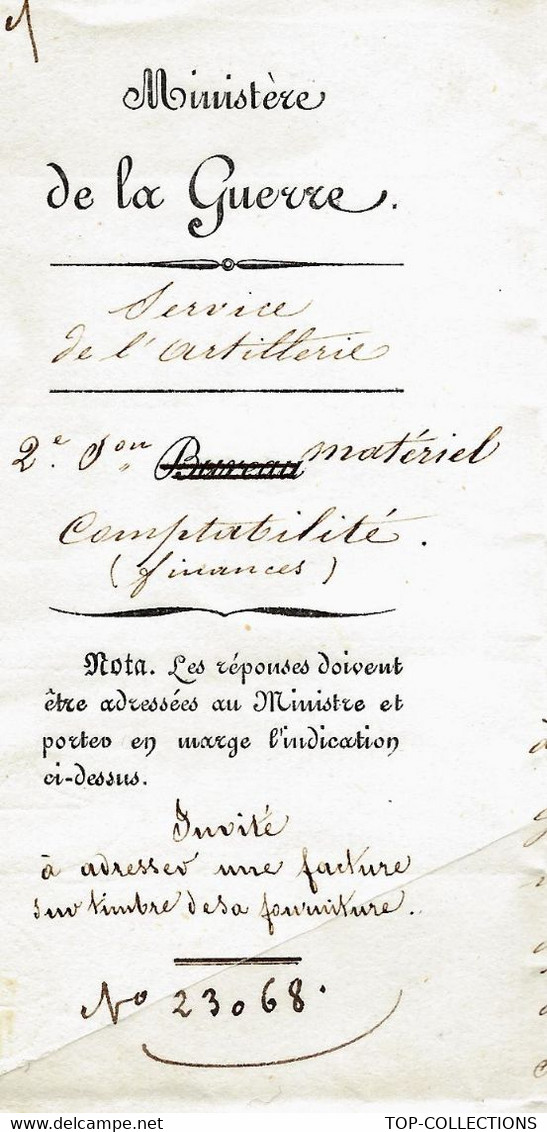 Ministère
de la Guerre.
Service
de l'artillerie
2e. Son Bureau matériel
Comptabilité.
(finances)
Nota. Les réponses doivent
être adressées au Ministre et
porter en marge l'indication
ci-dessus.
Invité
à adresser une facture
sur timbre de sa fourniture.
No 23068.
Delcampe.net
TOP-COLLECTIONS